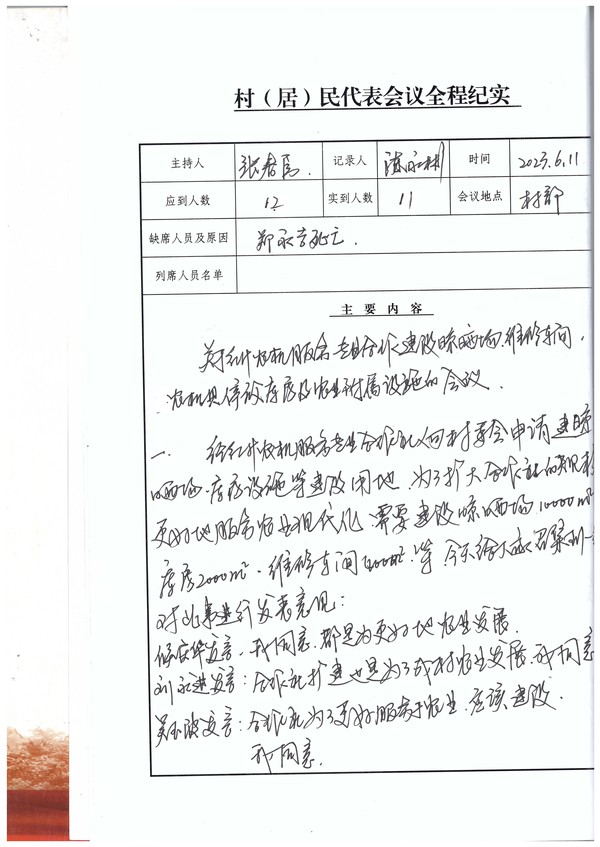 村（居）民代表会议全程纪实
主持人 记录人 时间 2023.6.11
应到人数 12 实到人数 11 会议地点 村部
缺席人员及原因 郑永吉死亡.
列席人员名单
主要内容
农机服务专业合作 建设晾晒场,维修车间,
农机具停放库房及农业附属设施的会议.
一. 农机服务专业合作社 向村委会申请建晾
晒场.库房设施等建设用地.为了扩大合作社的
更好地服务农业现代化 需要建设晾晒场10000m²
库房2000m².维修车间 m².等.今天给大家召集到一
对此事进行发表意见:
发言:我同意.都是为更好地农业发展.
刘永进发言:合作社扩建也是为了我村农业发展.我同意
发言:合作社为了更好服务于农业.应该建设.
我同意.